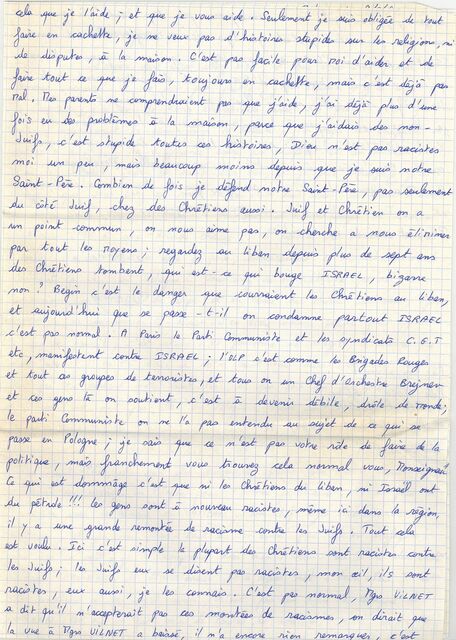 cela que je l'aide ; et que je vous aide. Seulement je suis obligée de tout
faire en cachette, je ne veux pas d'histoires stupides sur les religions, ni
de disputes, à la maison. C'est pas facile pour moi d'aider et de
faire tout ce que je fais, toujours en cachette, mais c'est déjà pas
mal. Mes parents ne comprendraient pas que j'aide, j'ai déjà plus d'une
fois eu des problèmes à la maison, parce que j'aidais des non-
Juifs, c'est stupide toutes ces histoires, Dieu n'est pas racistes
moi un peu, mais beaucoup moins depuis que je suis notre
Saint-Père. Combien de fois je défend notre Saint-Père, pas seulement
du côté Juif, chez des Chrétiens aussi. Juif et Chrétien on a
un point commun, on nous aime pas, on cherche a nous éliminer
par tout les moyens ; regardez au liban depuis plus de sept ans
des Chrétiens tombent, qui est-ce qui bouge ISRAEL, bizarre
non ? Begin c'est le danger que courraient les Chrétiens au liban,
et aujourd'hui que se passe-t-il on condamne partout ISRAEL
c'est pas normal. A Paris le Parti Communiste et les syndicats C.G.T
etc, manifestent contre ISRAEL ; l'OLP c'est comme les Brigades Rouges
et tout ces groupes de terroristes, et tous on un Chef d'Orchestre Brejnev
et ces gens là on soutient, c'est à devenir débile, drôle de monde ;
le parti Communiste on ne l'a pas entendu au sujet de ce qui se
passe en Pologne ; je sais que ce n'est pas votre rôle de faire de la
politique, mais franchement vous trouvez cela normal vous, Monseigneur
Ce qui est dommage c'est que ni les Chrétiens du liban, ni Israël ont
du pétrole !!! Les gens sont à nouveau racistes, même ici dans la région,
il y a une grande remontée de racisme contre les Juifs. Tout cela
est voulu. Ici c'est simple la plupart des Chrétiens sont racistes contre
les Juifs ; les Juifs eux se disent pas racistes, mon œil, ils sont
racistes, eux aussi, je les connais. C'est pas normal, Mgr VILNET
a dit qu'il n'accepterait pas ces montées de racismes, on dirait que
la vue à Mgr VILNET a baissé, il n'a encore rien remarqué, c'est